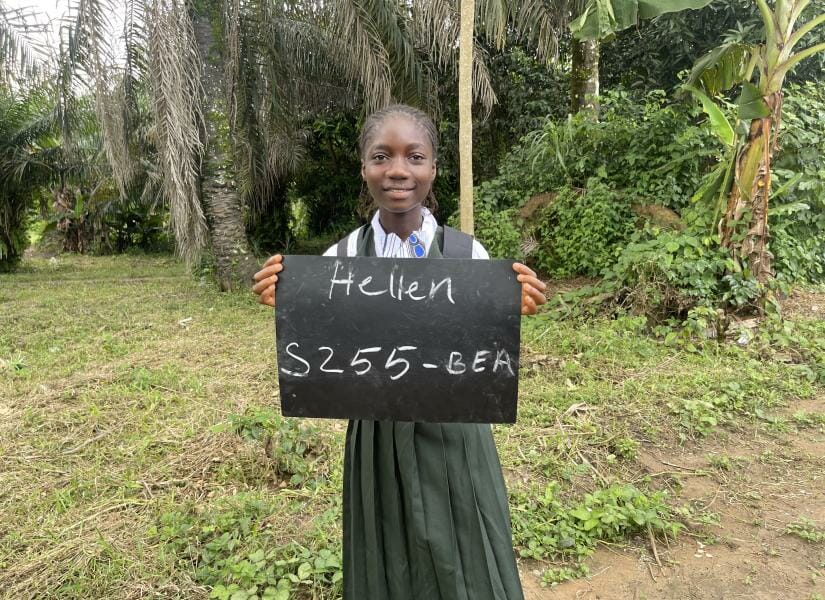 Hellen
S255-BEA